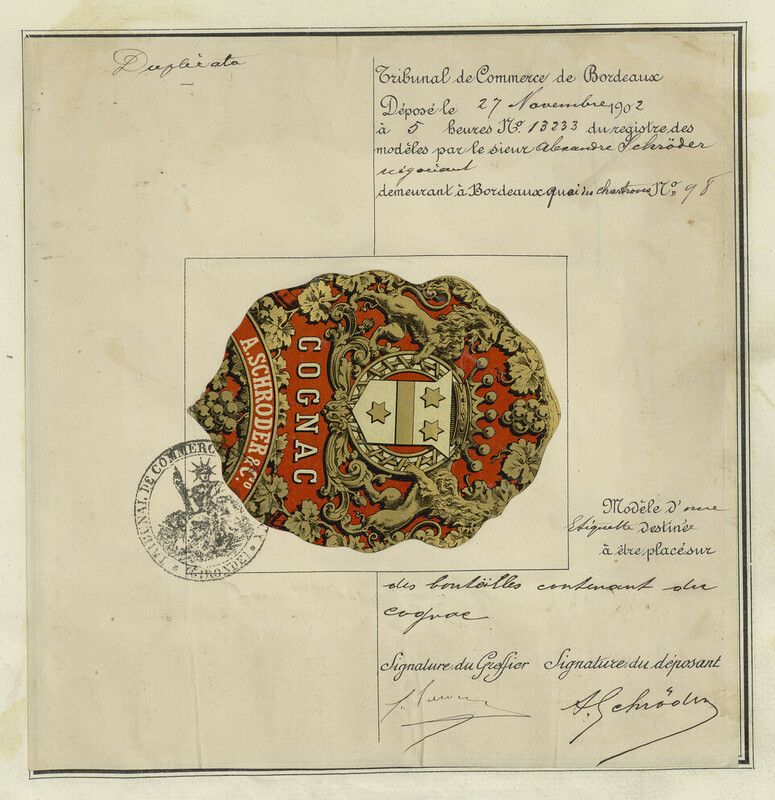 Duplicata
Tribunal de Commerce de Bordeaux
Déposé le 27 Novembre 1902
à 5 heures No. 13233 du registre des
modèles par le sieur Alexandre Schröder
négociant
demeurant à Bordeaux quai des chartrons No. 98
COGNAC
A. SCHRODER & Co.
TRIBUNAL DE COMMERCE
(GIRONDE)
Modèle d'une
Etiquette destinée
à être placé sur
des bouteilles contenant du
cognac
Signature du Greffier Signature du déposant
A. Schröder